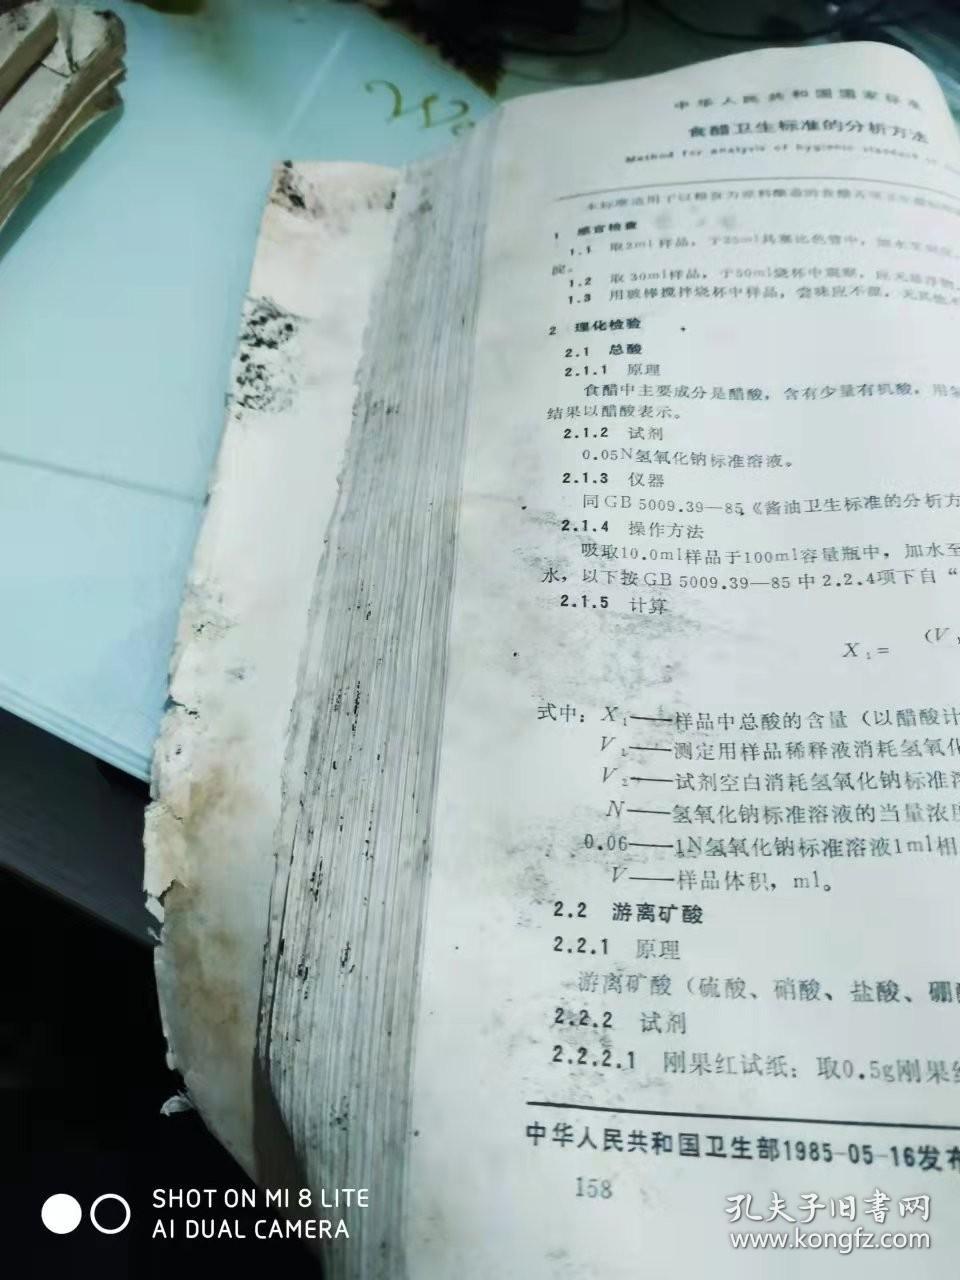 We
中华人民共和国国家标准
食醋卫生标准的分析方法
Method for analysis of hygienic standard
本标准适用于以粮食为原料酿造的食醋
1 感官检查
1.1 取2ml样品，于25ml具塞比色管中，加水至
淀。
1.2 取30ml样品，于50ml烧杯中观察，应无悬浮物，
1.3 用玻棒搅拌烧杯中样品，尝味应不涩，无其他
2 理化检验
2.1 总酸
2.1.1 原理
食醋中主要成分是醋酸，含有少量有机酸，用
结果以醋酸表示。
2.1.2 试剂
0.05N氢氧化钠标准溶液。
2.1.3 仪器
同GB 5009.39—85《酱油卫生标准的分析方
2.1.4 操作方法
吸取10.0ml样品于100ml容量瓶中，加水至
水，以下按GB 5009.39—85中2.2.4项下自“
2.1.5 计算
X₁= (V₁
式中：X₁——样品中总酸的含量（以醋酸计
V₁——测定用样品稀释液消耗氢氧化
V₂——试剂空白消耗氢氧化钠标准溶
N——氢氧化钠标准溶液的当量浓度
0.06——1N氢氧化钠标准溶液1ml相
V——样品体积，ml。
2.2 游离矿酸
2.2.1 原理
游离矿酸（硫酸、硝酸、盐酸、硼酸
2.2.2 试剂
2.2.2.1 刚果红试纸：取0.5g刚果红
中华人民共和国卫生部1985-05-16发布
158
SHOT ON MI 8 LITE
AI DUAL CAMERA
孔夫子旧书网
www.kongfz.com